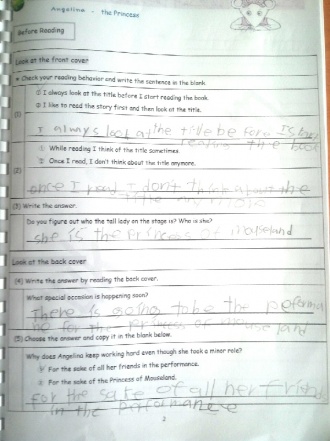 Angelina - the Princess
Before Reading
Look at the front cover
* Check your reading behavior and write the sentence in the blank.
① I always look at the title before I start reading the book.
② I like to read the story first and then look at the title.
(1)
I always look at the title before I start
reading the book
① While reading I think of the title sometimes.
② Once I read, I don't think about the title anymore.
(2)
once I read I don't think about the
title any more
(3) Write the answer.
Do you figure out who the tall lady on the stage is? Who is she?
she is the princess of mouseland
Look at the back cover
(4) Write the answer by reading the back cover.
What special occasion is happening soon?
There is going to be the peforma
ne for the Princess of mouse land
(5) Choose the answer and copy it in the blank below.
Why does Angelina keep working hard even though she took a minor role?
For the sake of all her friends in the performance.
For the sake of the Princess of Mouseland.
For the sake of all her friend
in the performance
2